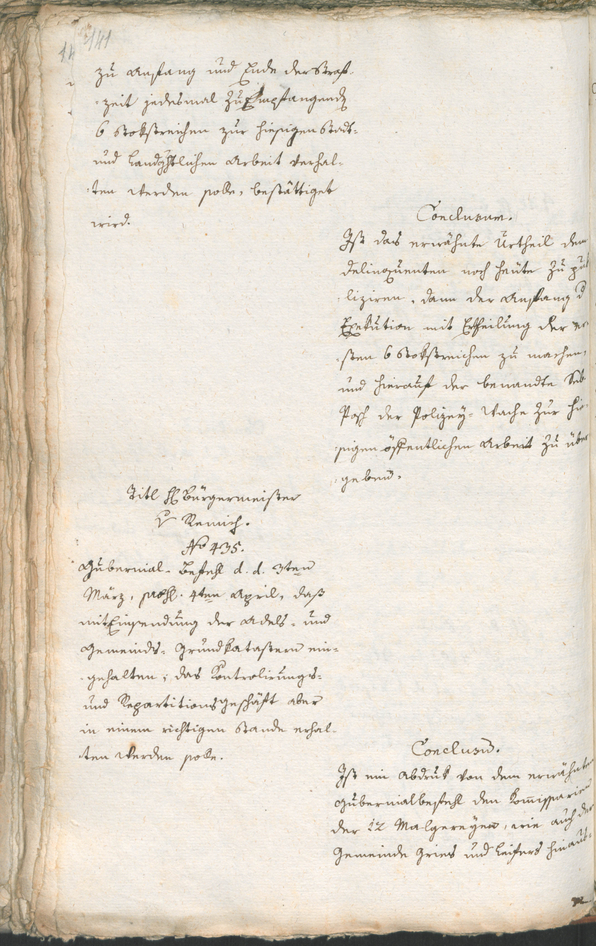 141
zu Anfang und Ende der Straf-
zeit jedesmal zu Empfangende
6 Stokstreichen zur hiesigen Stadt-
und Landgstlichen Arbeit verhal-
ten werden solle, bestättiget
wird.
Conclusum.
Ist das erwähnte Urtheil dem
Delinquenten noch heute zu pub
liziren, dann der Anfang d
Exekution mit Ertheilung der er
sten 6 Stokstreichen zu machen,
und hierauf der benandte Seb
Posch der Polizey-Wache zur hie
sigen öffentlichen Arbeit zu über
geben.
Titl H Bürgermeister
v Remich.
No 435.
Gubernial-Befehl d. d. 3ten
März, prs. 4ten April, daß
mit Einsendung der Adels- und
Gemeinds-Grundkatastern ein-
gehalten; das Kontrolirungs-
und Repartitionsgeschäft aber
in einem richtigen Stande erhal-
ten werden solle.
Conclusum.
Ist ein Abdruk von dem erwähnten
Gubernialbefehl den Kommissarien
der 12 Malgereyen, wie auch der
Gemeinde Gries und Leifers hinaus-